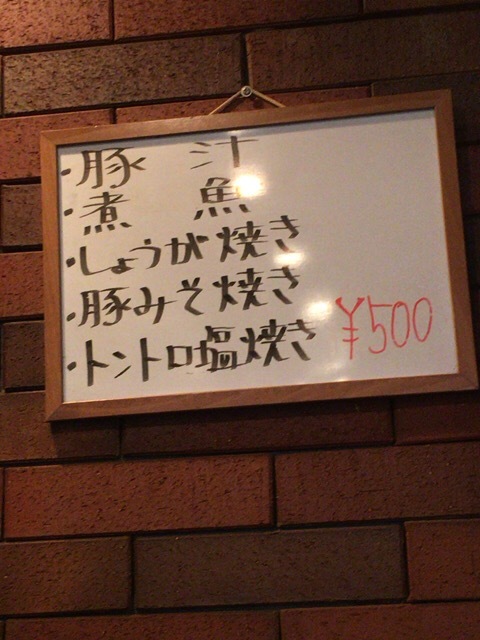 ・豚汁
・煮魚
・しょうが焼き
・豚みそ焼き
・トントロ塩焼き ¥500